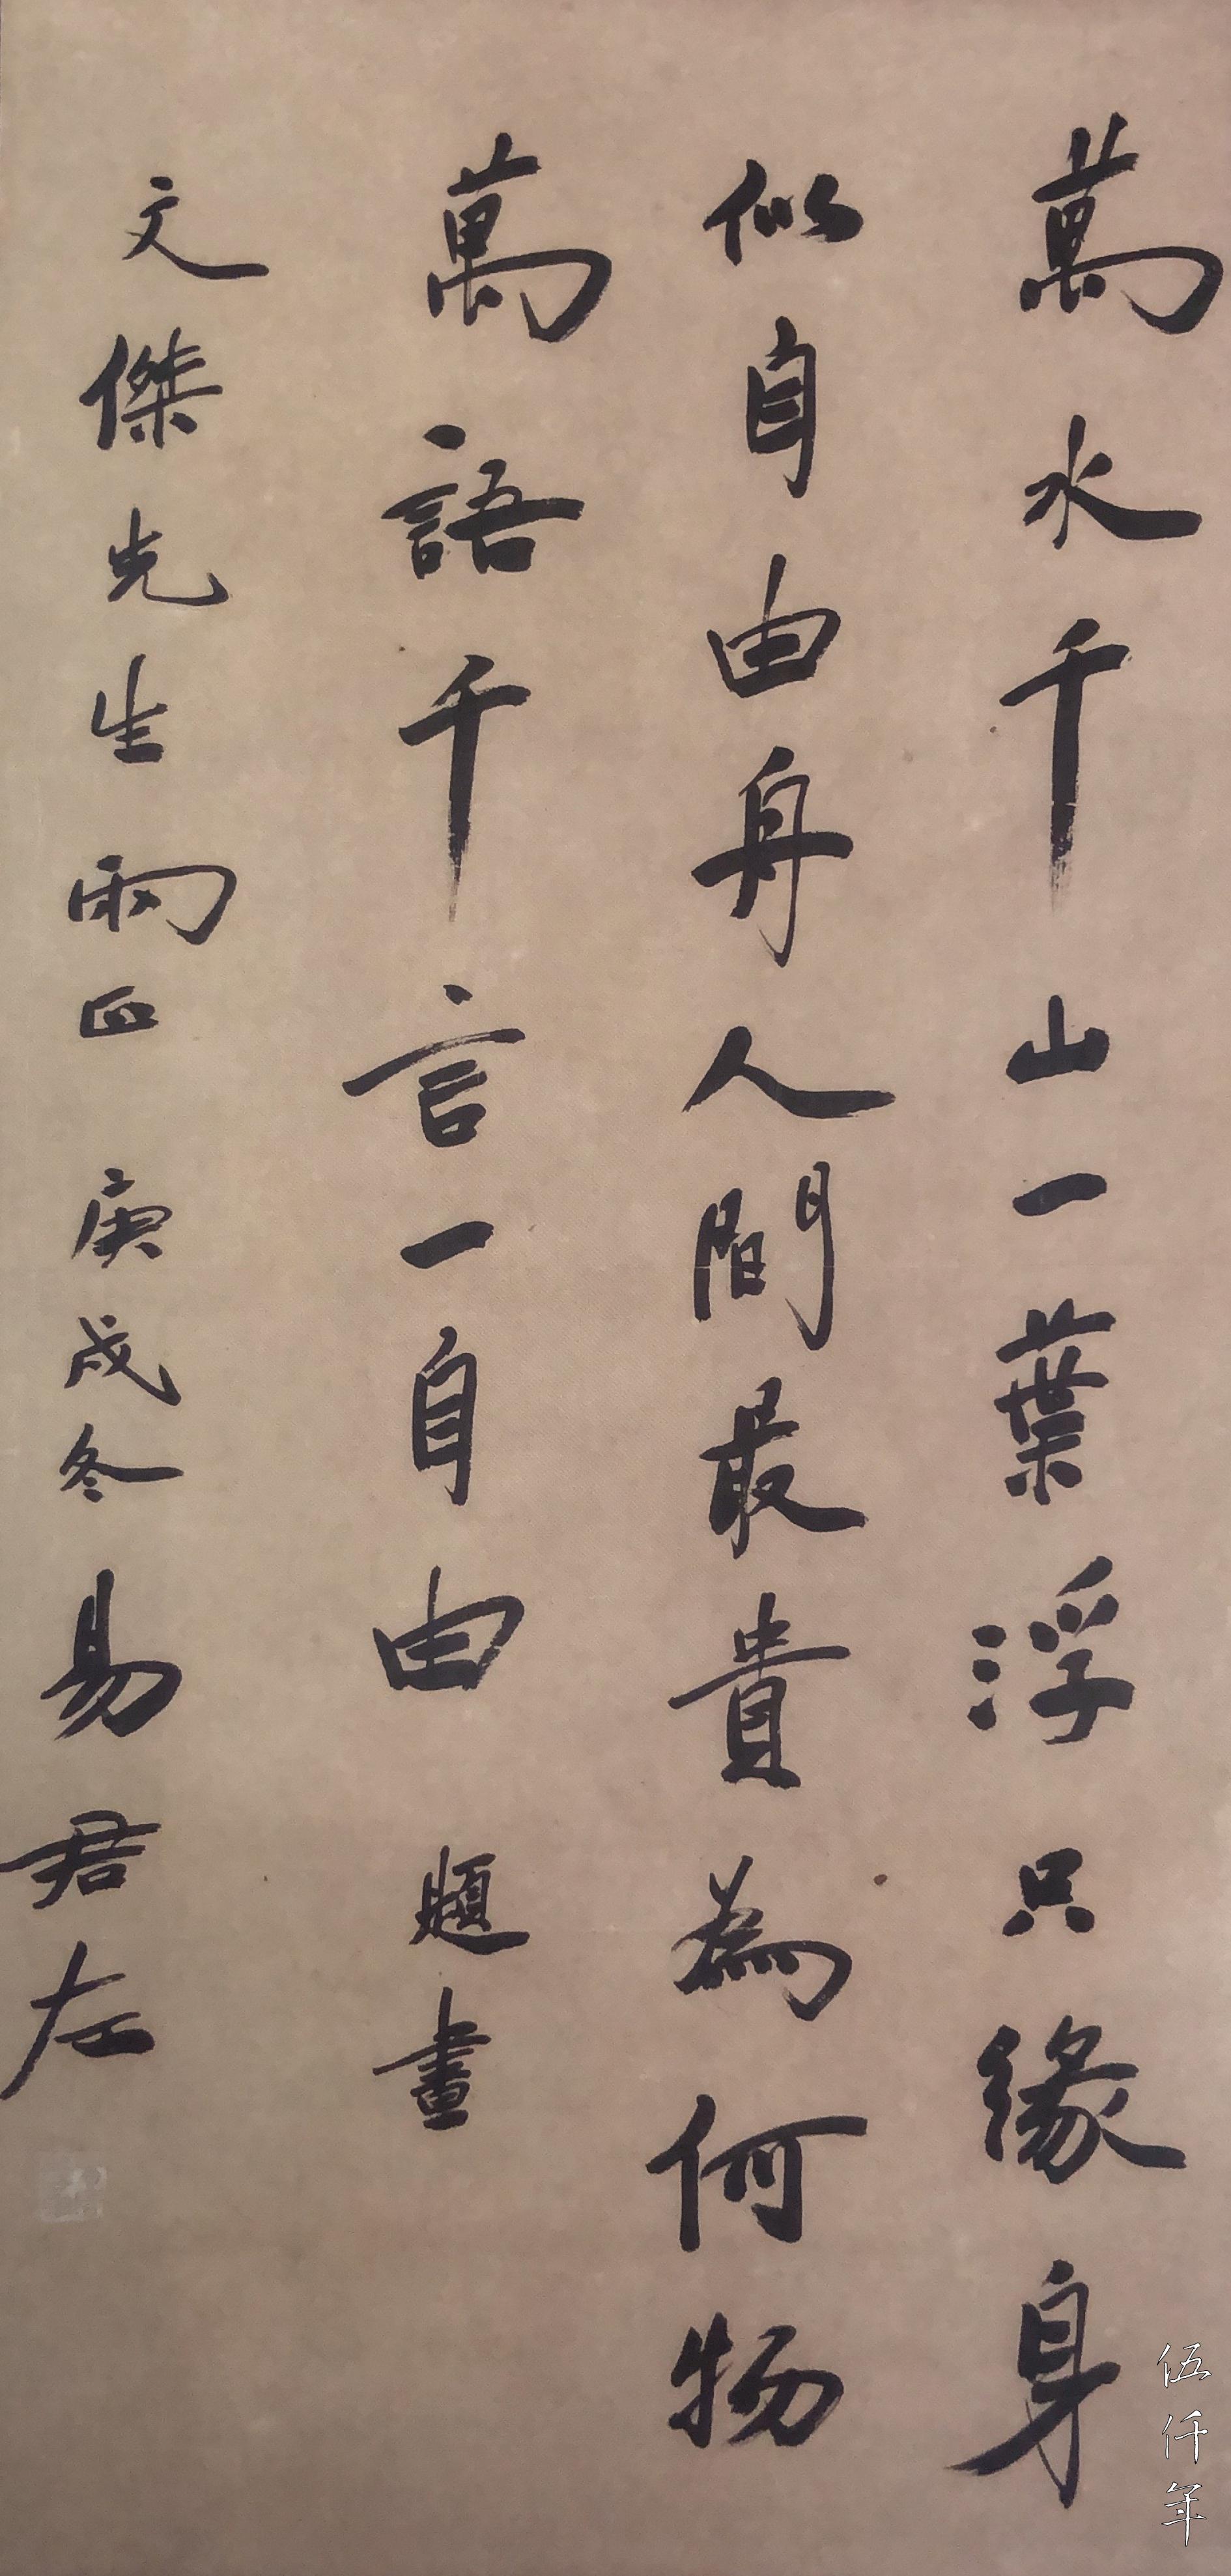 萬水千山一葉浮只緣身
似自由舟人間最貴為何物
萬語千言一自由 題畫
文傑先生兩正 庚戌冬 易君左
伍仟年